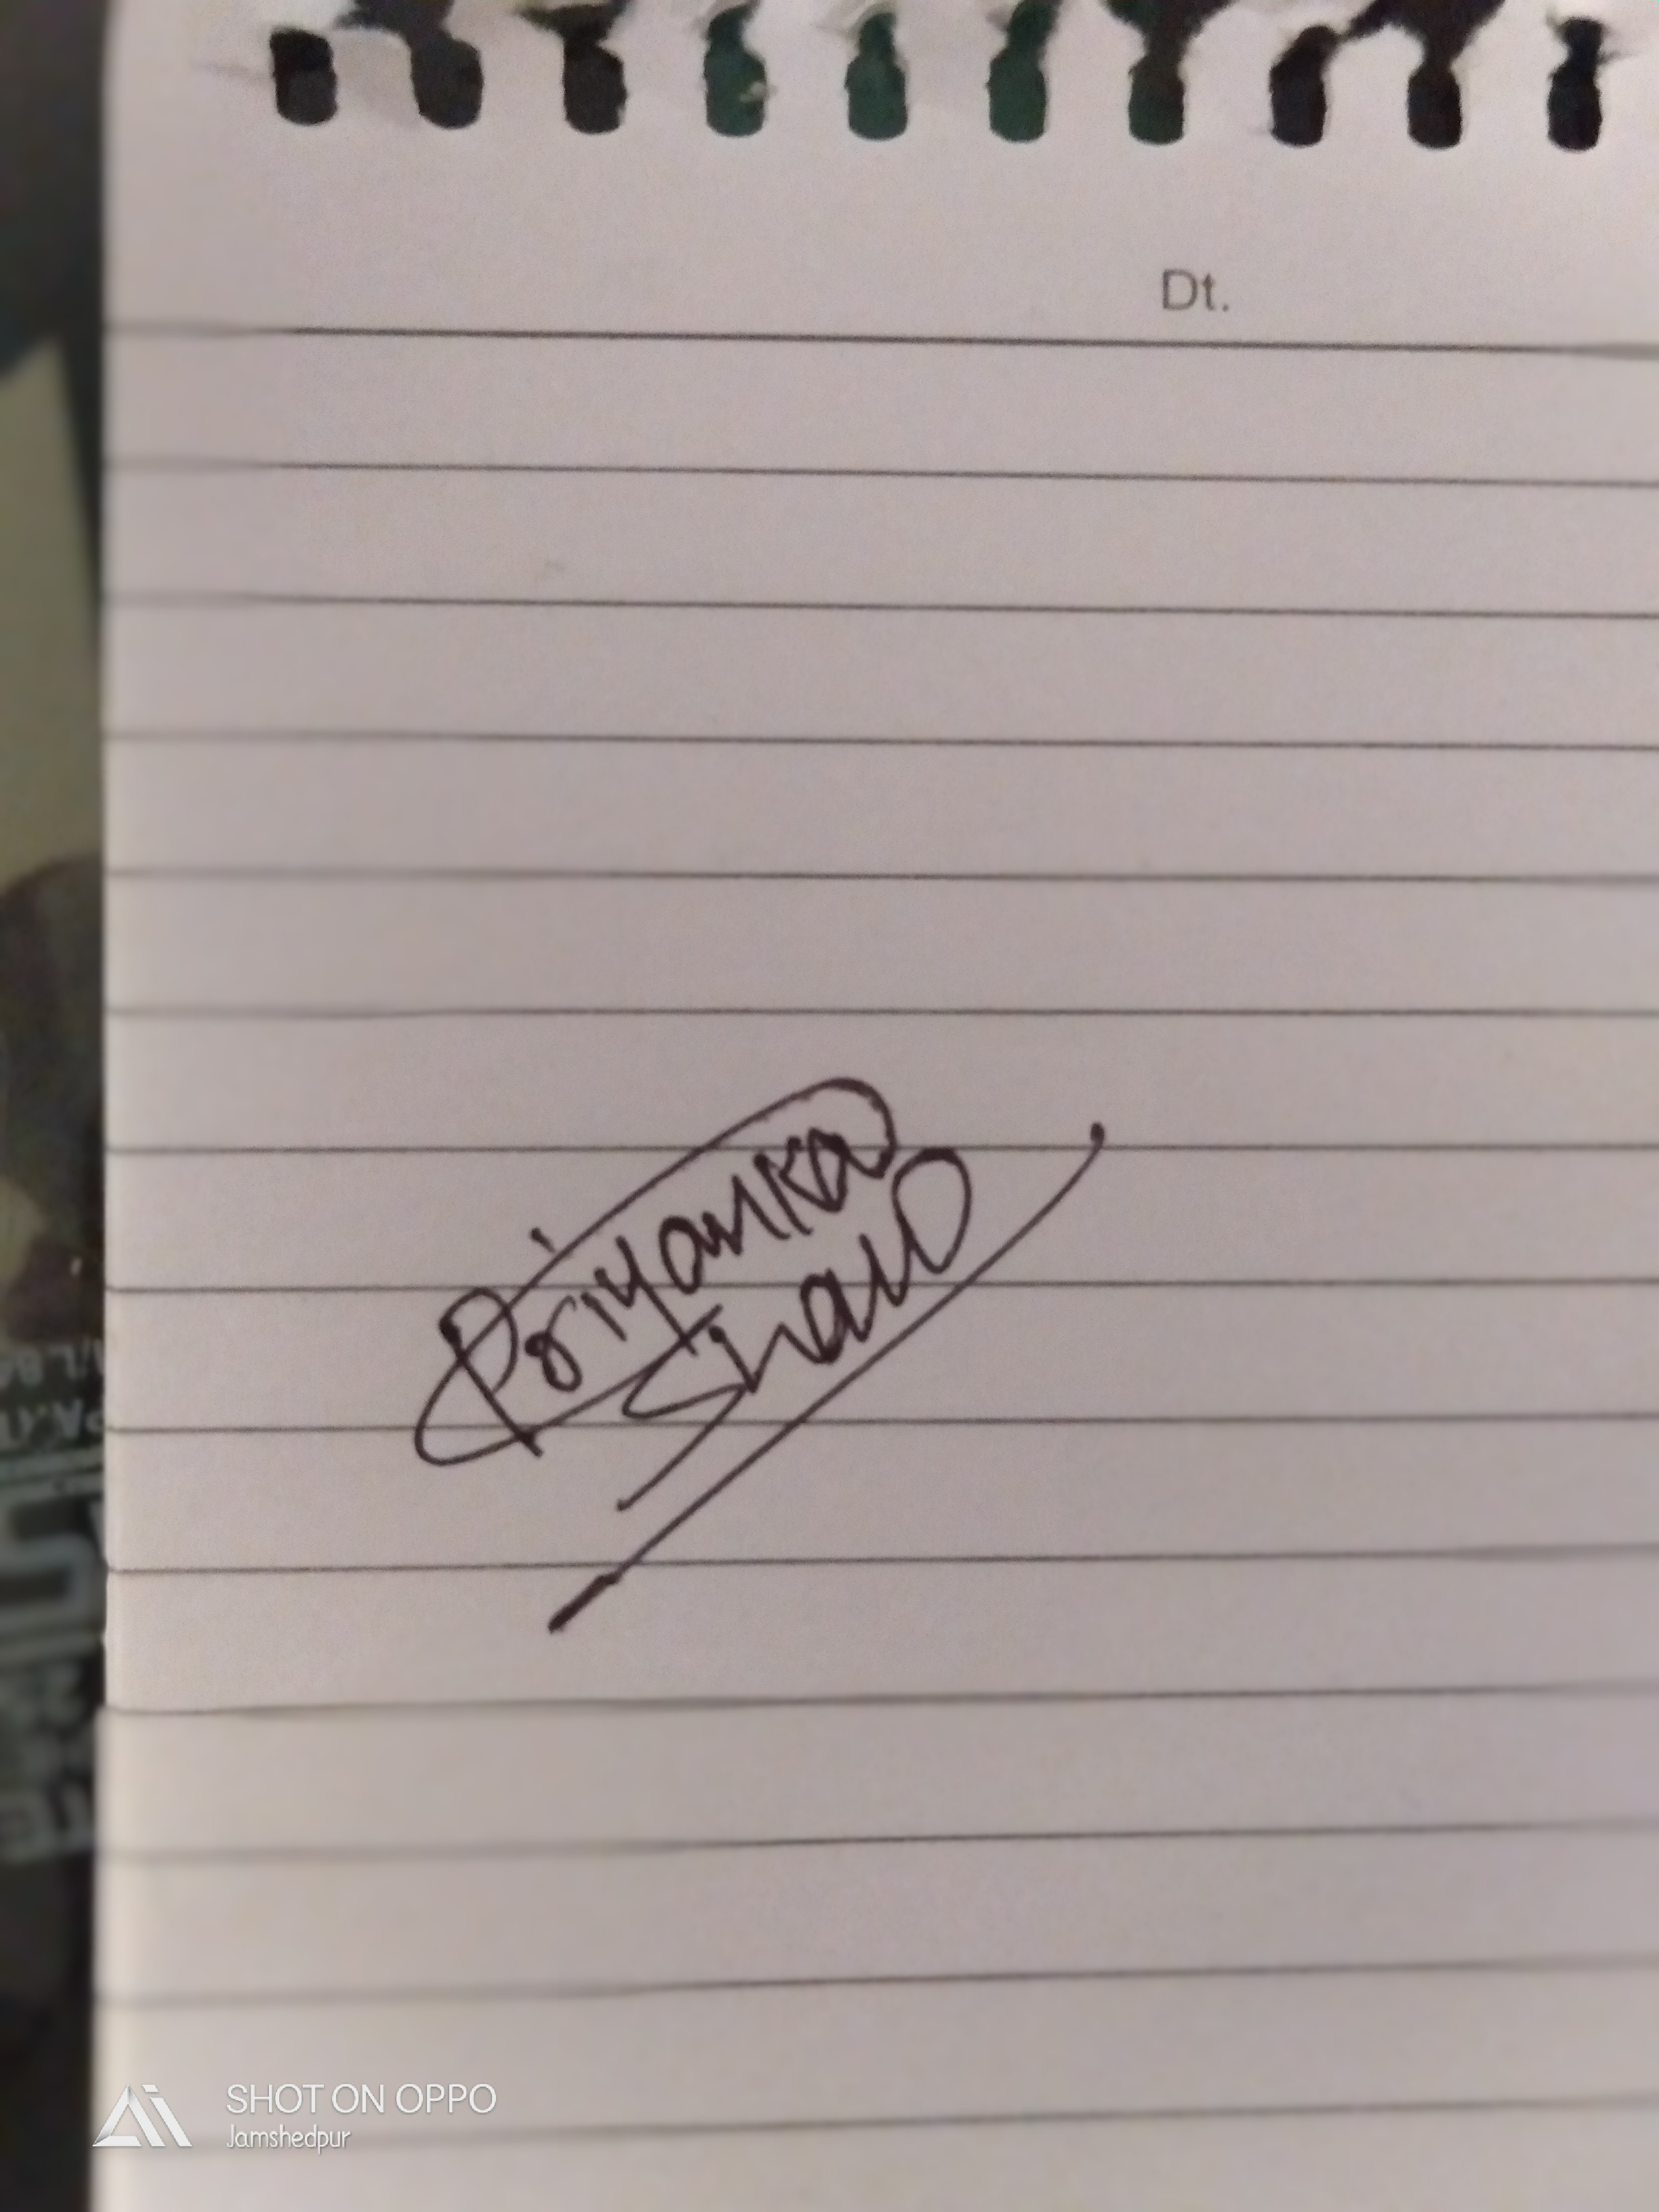 Dt.
Priyanka
Shaw
SHOT ON OPPO
Jamshedpur